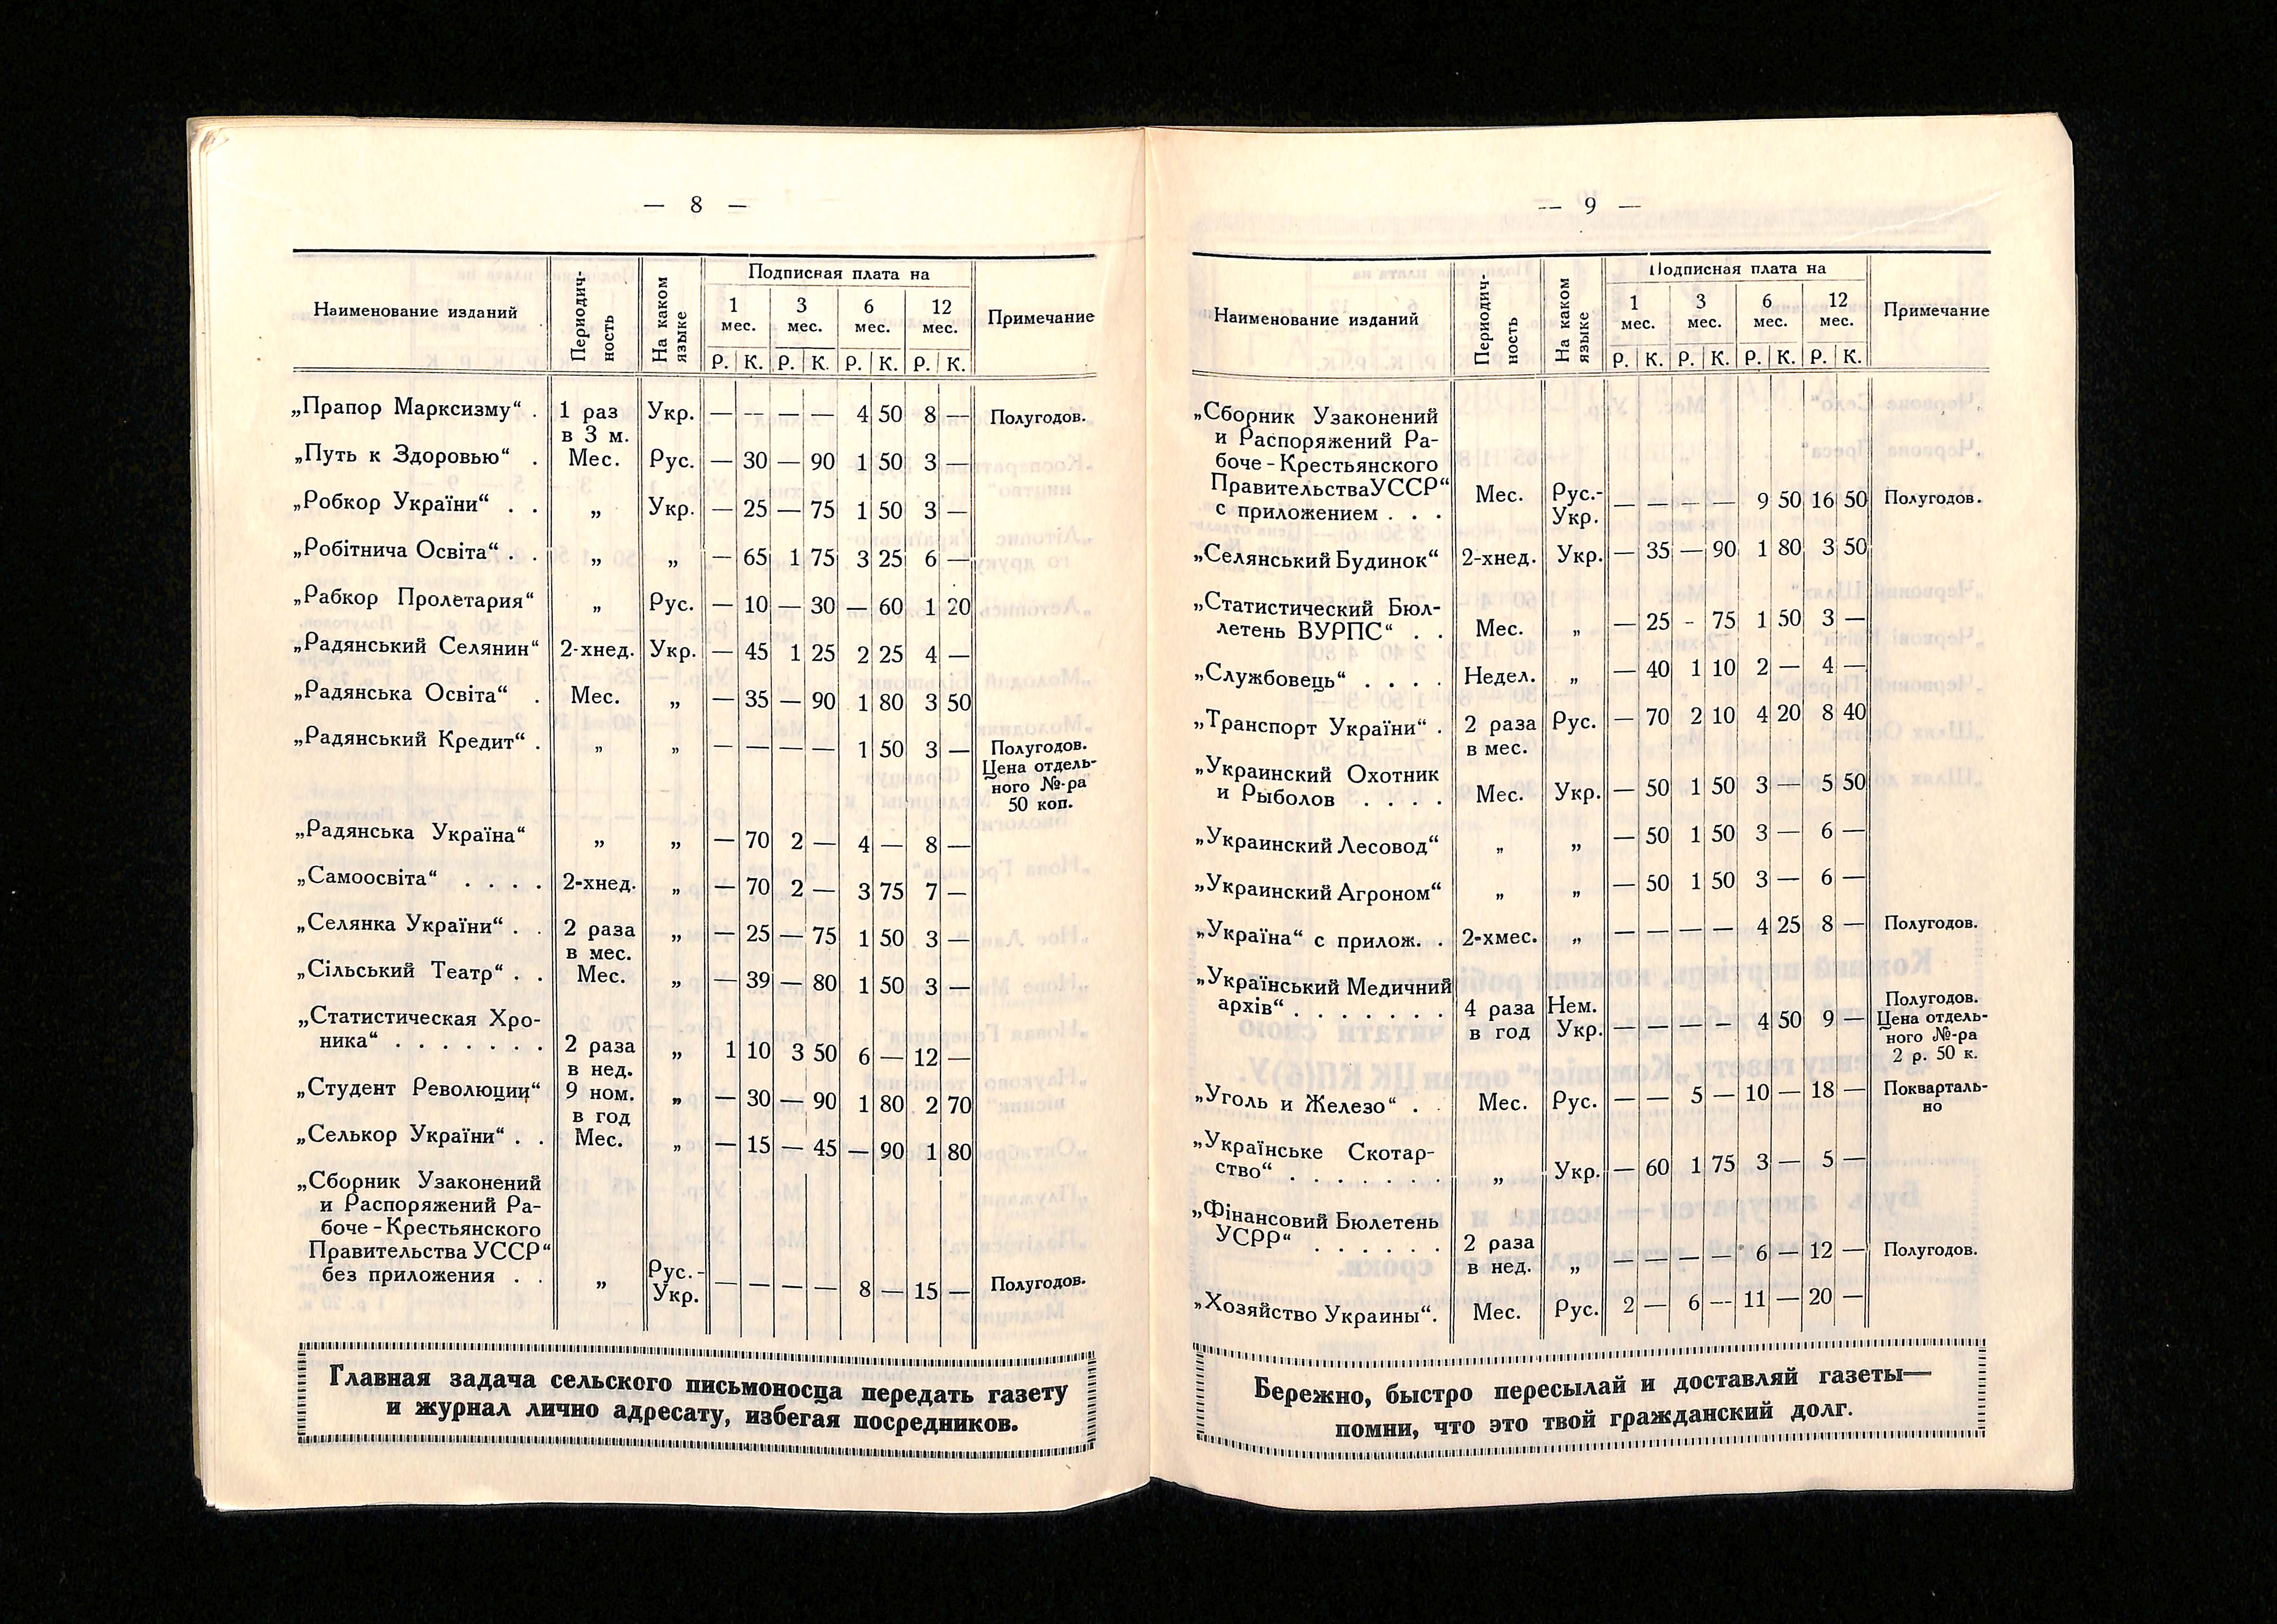 — 8 —
Наименование изданий
Периодич-
ность
На каком
языке
Подписная плата на
1 3 6 12
мес. мес. мес. мес.
Примечание
Р. К. Р. К. Р. К. Р. К.
„Прапор Марксизму“ . 1 раз Укр. — -- — — 4 50 8 — Полугодов.
в 3 м.
„Путь к Здоровью“ . Мес. Рус. — 30 — 90 1 50 3 —
„Робкор України“ . . „ Укр. — 25 — 75 1 50 3 —
„Робітнича Освіта“ . . „ „ — 65 1 75 3 25 6 —
„Рабкор Пролетария“ „ Рус. — 10 — 30 — 60 1 20
„Радянський Селянин“ 2-хнед. Укр. — 45 1 25 2 25 4 —
„Радянська Освіта“ . Мес. „ — 35 — 90 1 80 3 50
„Радянський Кредит“ . „ „ — — — — 1 50 3 — Полугодов.
Цена отдель-
ного №-ра
50 коп.
„Радянська Україна“ „ „ — 70 2 — 4 — 8 —
„Самоосвіта“ . . . . 2-хнед. „ — 70 2 — 3 75 7 —
„Селянка України“ . . 2 раза „ — 25 — 75 1 50 3 —
в мес.
„Сільський Театр“ . . Мес. „ — 39 — 80 1 50 3 —
„Статистическая Хро-
ника“ . . . . . . . 2 раза „ 1 10 3 50 6 — 12 —
в нед.
„Студент Революции“ 9 ном. „ — 30 — 90 1 80 2 70
в год
„Селькор України“ . . Мес. „ — 15 — 45 — 90 1 80
„Сборник Узаконений
и Распоряжений Ра-
боче-Крестьянского
Правительства УССР“
без приложения . . „ Рус.- — — — — 8 — 15 — Полугодов.
Укр.
Главная задача сельского письмоносца передать газету
и журнал лично адресату, избегая посредников.
— 9 —
Наименование изданий
Периодич-
ность
На каком
языке
Подписная плата на
1 3 6 12
мес. мес. мес. мес.
Примечание
Р. К. Р. К. Р. К. Р. К.
„Сборник Узаконений
и Распоряжений Ра-
боче-Крестьянского
ПравительстваУССР“
с приложением . . . Мес. Рус.- — — — — 9 50 16 50 Полугодов.
Укр.
„Селянський Будинок“ 2-хнед. Укр. — 35 — 90 1 80 3 50
„Статистический Бюл-
летень ВУРПС“ . . Мес. „ — 25 - 75 1 50 3 —
„Службовець“ . . . . Недел. „ — 40 1 10 2 — 4 —
„Транспорт України“ . 2 раза Рус. — 70 2 10 4 20 8 40
в мес.
„Украинский Охотник
и Рыболов . . . . Мес. Укр. — 50 1 50 3 — 5 50
„Украинский Лесовод“ „ „ — 50 1 50 3 — 6 —
„Украинский Агроном“ „ „ — 50 1 50 3 — 6 —
„Україна“ с прилож. . 2-хмес. „ — — — — 4 25 8 — Полугодов.
„Український Медичний
архів“ . . . . . . . 4 раза Нем. Полугодов.
в год Укр. — — — — 4 50 9 — Цена отдель-
ного №-ра
2 р. 50 к.
„Уголь и Железо“ . . Мес. Рус. — — 5 — 10 — 18 — Покварталь-
но
„Українське Скотар-
ство“ . . . . . . . „ Укр. — 60 1 75 3 — 5 —
„Фінансовий Бюлетень
УСРР“ . . . . . . 2 раза
в нед. „ — — — — 6 — 12 — Полугодов.
„Хозяйство Украины“. Мес. Рус. 2 — 6 — 11 — 20 —
Бережно, быстро пересылай и доставляй газеты—
помни, что это твой гражданский долг.